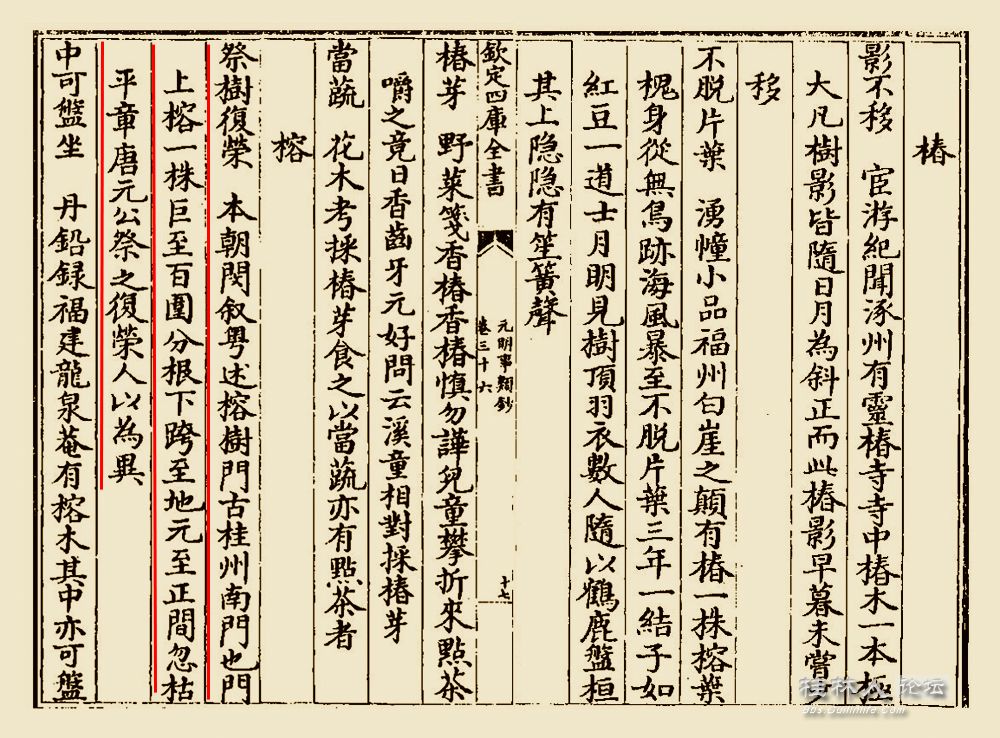 椿
影不移　宦游紀聞涿州有靈椿寺寺中椿木一本極
大凡樹影皆隨日月為斜正而此椿影早暮未嘗
移
不脱片葉　湧幢小品福州白崖之顛有椿一株榕葉
槐身從無鳥跡海風暴至不脱片葉三年一結子如
紅豆一道士月明見樹頂羽衣數人隨以鶴鹿盤桓
其上隐隐有笙簧聲
欽定四庫全書
元明事類鈔
卷三十六
十七
椿芽　野菜箋香椿香椿慎勿譁兒童攀折來點茶
嚼之竟日香齒牙元好問云溪童相對採椿芽
當蔬　花木考採椿芽食之以當蔬亦有點茶者
榕
祭樹復榮　本朝閔叙粤述榕樹門古桂州南門也門
上榕一株巨至百圍分根下跨至地元至正間忽枯
平章唐元公祭之復榮人以為異
中可盤坐　丹鉛録福建龍泉菴有榕木其中亦可盤
桂林人论坛